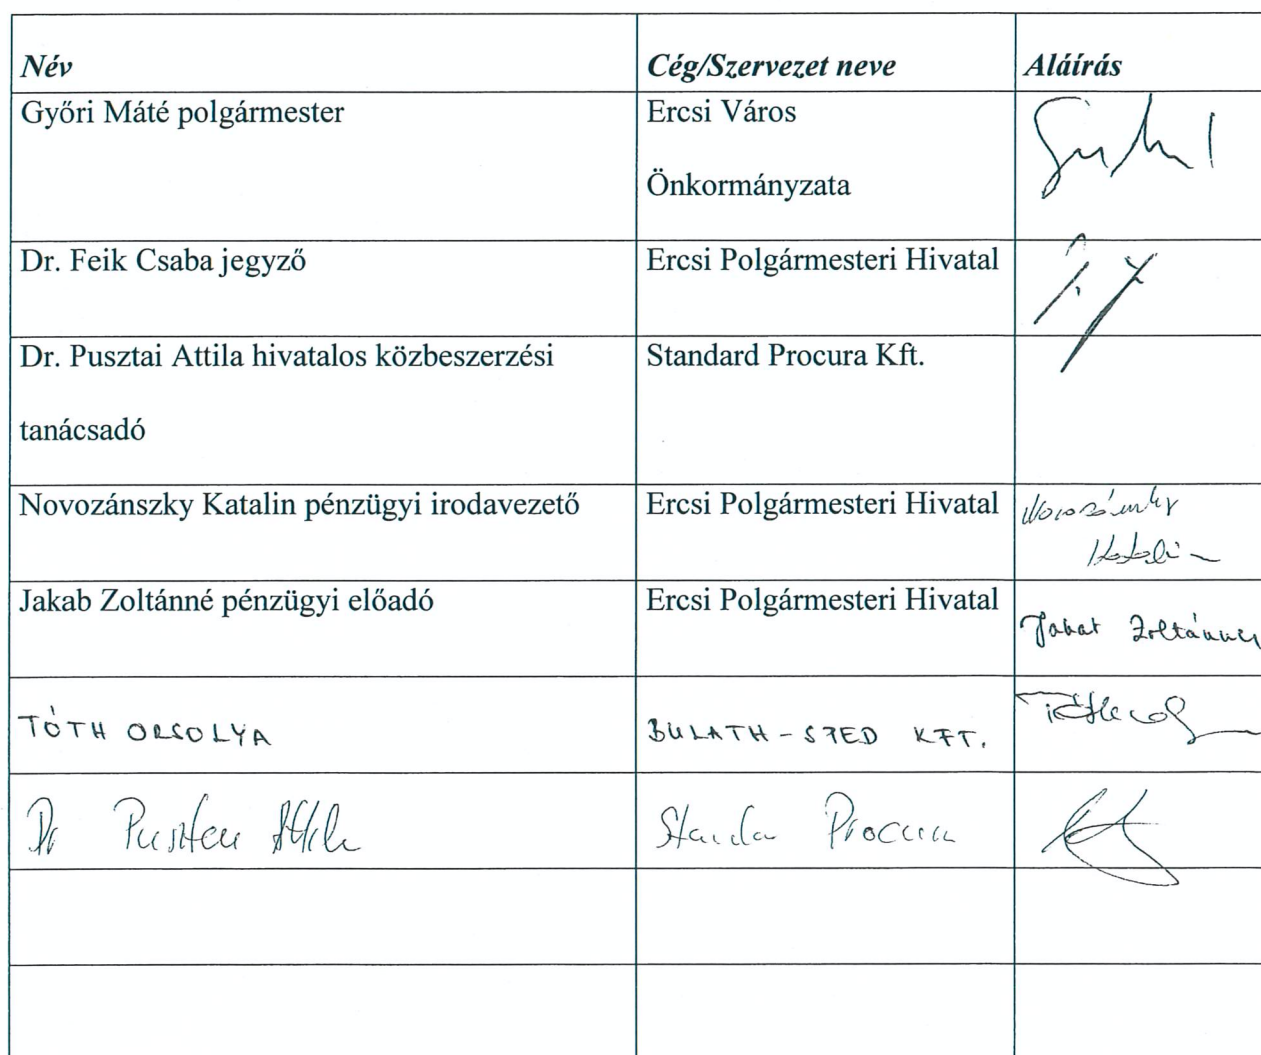 Név Cég/Szervezet neve Aláírás
Győri Máté polgármester Ercsi Város
Önkormányzata
Dr. Feik Csaba jegyző Ercsi Polgármesteri Hivatal
Dr. Pusztai Attila hivatalos közbeszerzési Standard Procura Kft.
tanácsadó
Novozánszky Katalin pénzügyi irodavezető Ercsi Polgármesteri Hivatal Novozánszky
Katalin
Jakab Zoltánné pénzügyi előadó Ercsi Polgármesteri Hivatal Jakab Zoltánné
TÓTH ORSOLYA BULATH-SZED KFT.
Dr Pusztai Attila Standar Procura